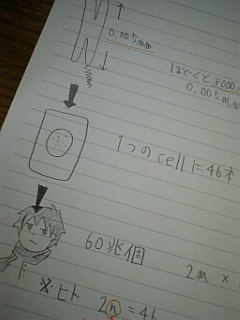 0.005mm
ほどくと 2000/
0.005m
1つのcellに46本
60兆個
2m ×
※ヒト 2n = 46